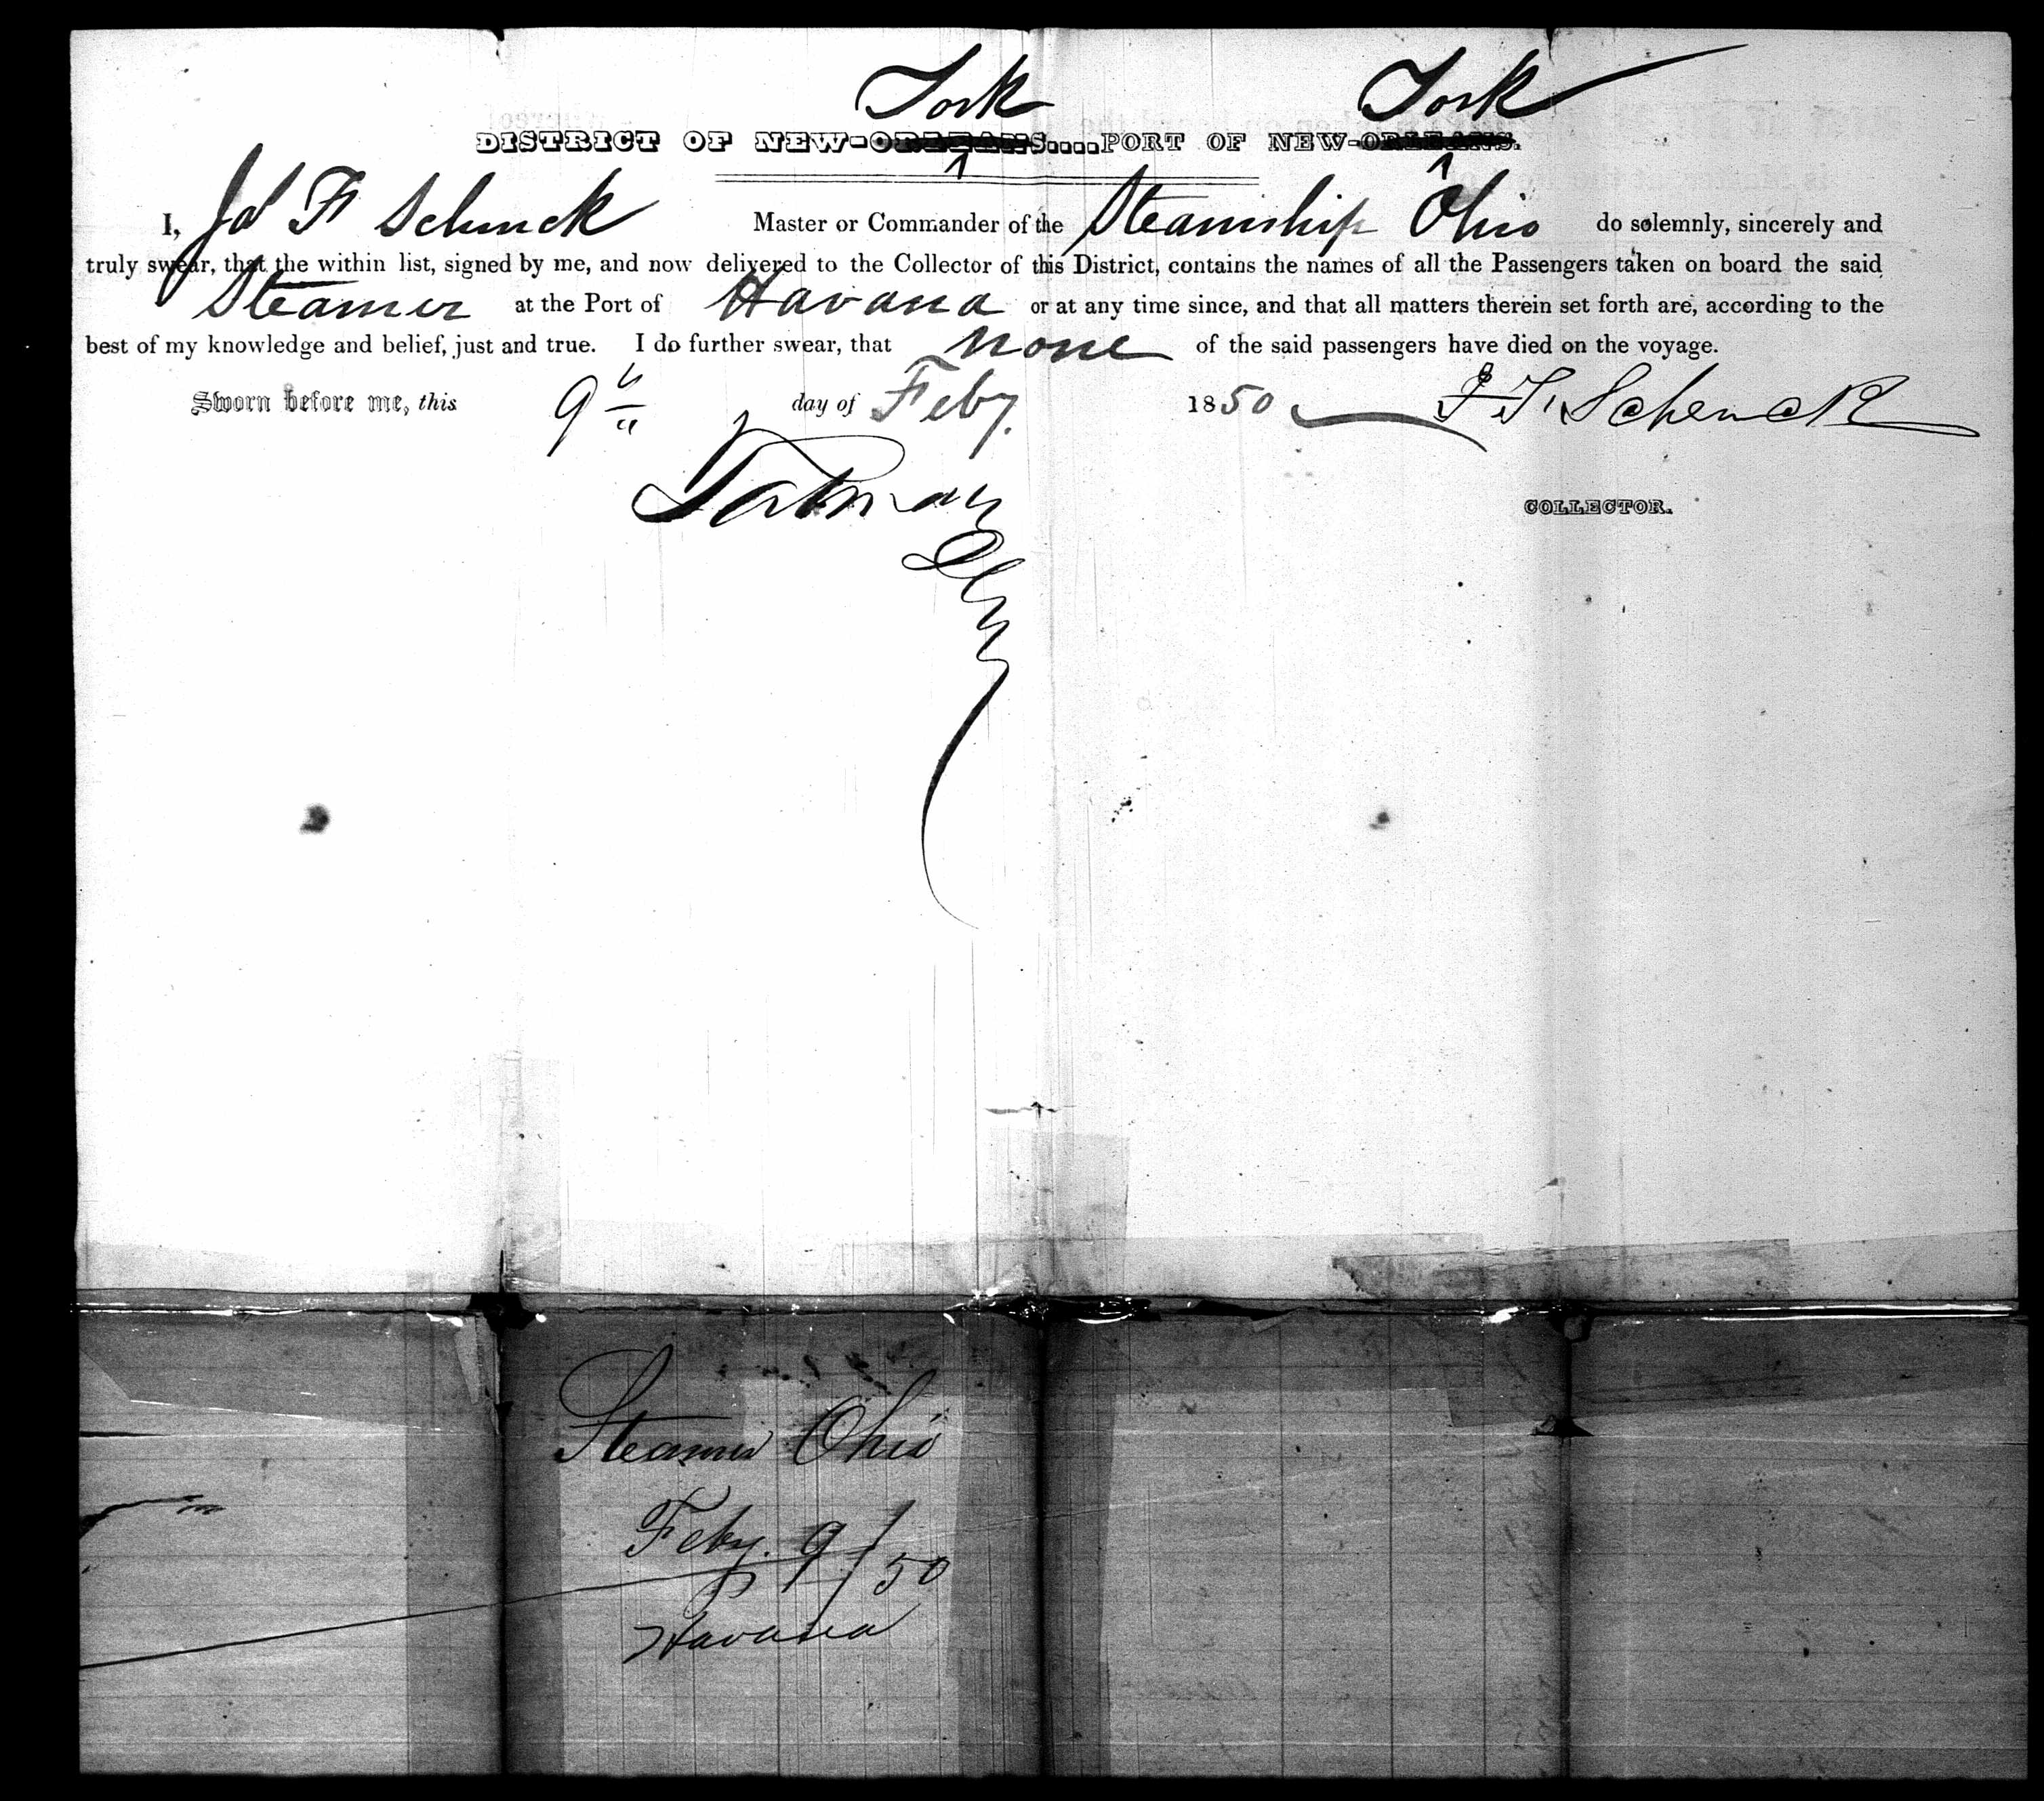 York York
DISTRICT OF NEW-ORLEANS....PORT OF NEW-ORLEANS.
I, Ja F Schenck Master or Commander of the Steamship Ohio do solemnly, sincerely and
truly swear, that the within list, signed by me, and now delivered to the Collector of this District, contains the names of all the Passengers taken on board the said
Steamer at the Port of Havana or at any time since, and that all matters therein set forth are, according to the
best of my knowledge and belief, just and true. I do further swear, that none of the said passengers have died on the voyage.
Sworn before me, this 9th day of Feby. 1850 J F Schenck
COLLECTOR.
Steamer Ohio
Feby. 9/50
Havana